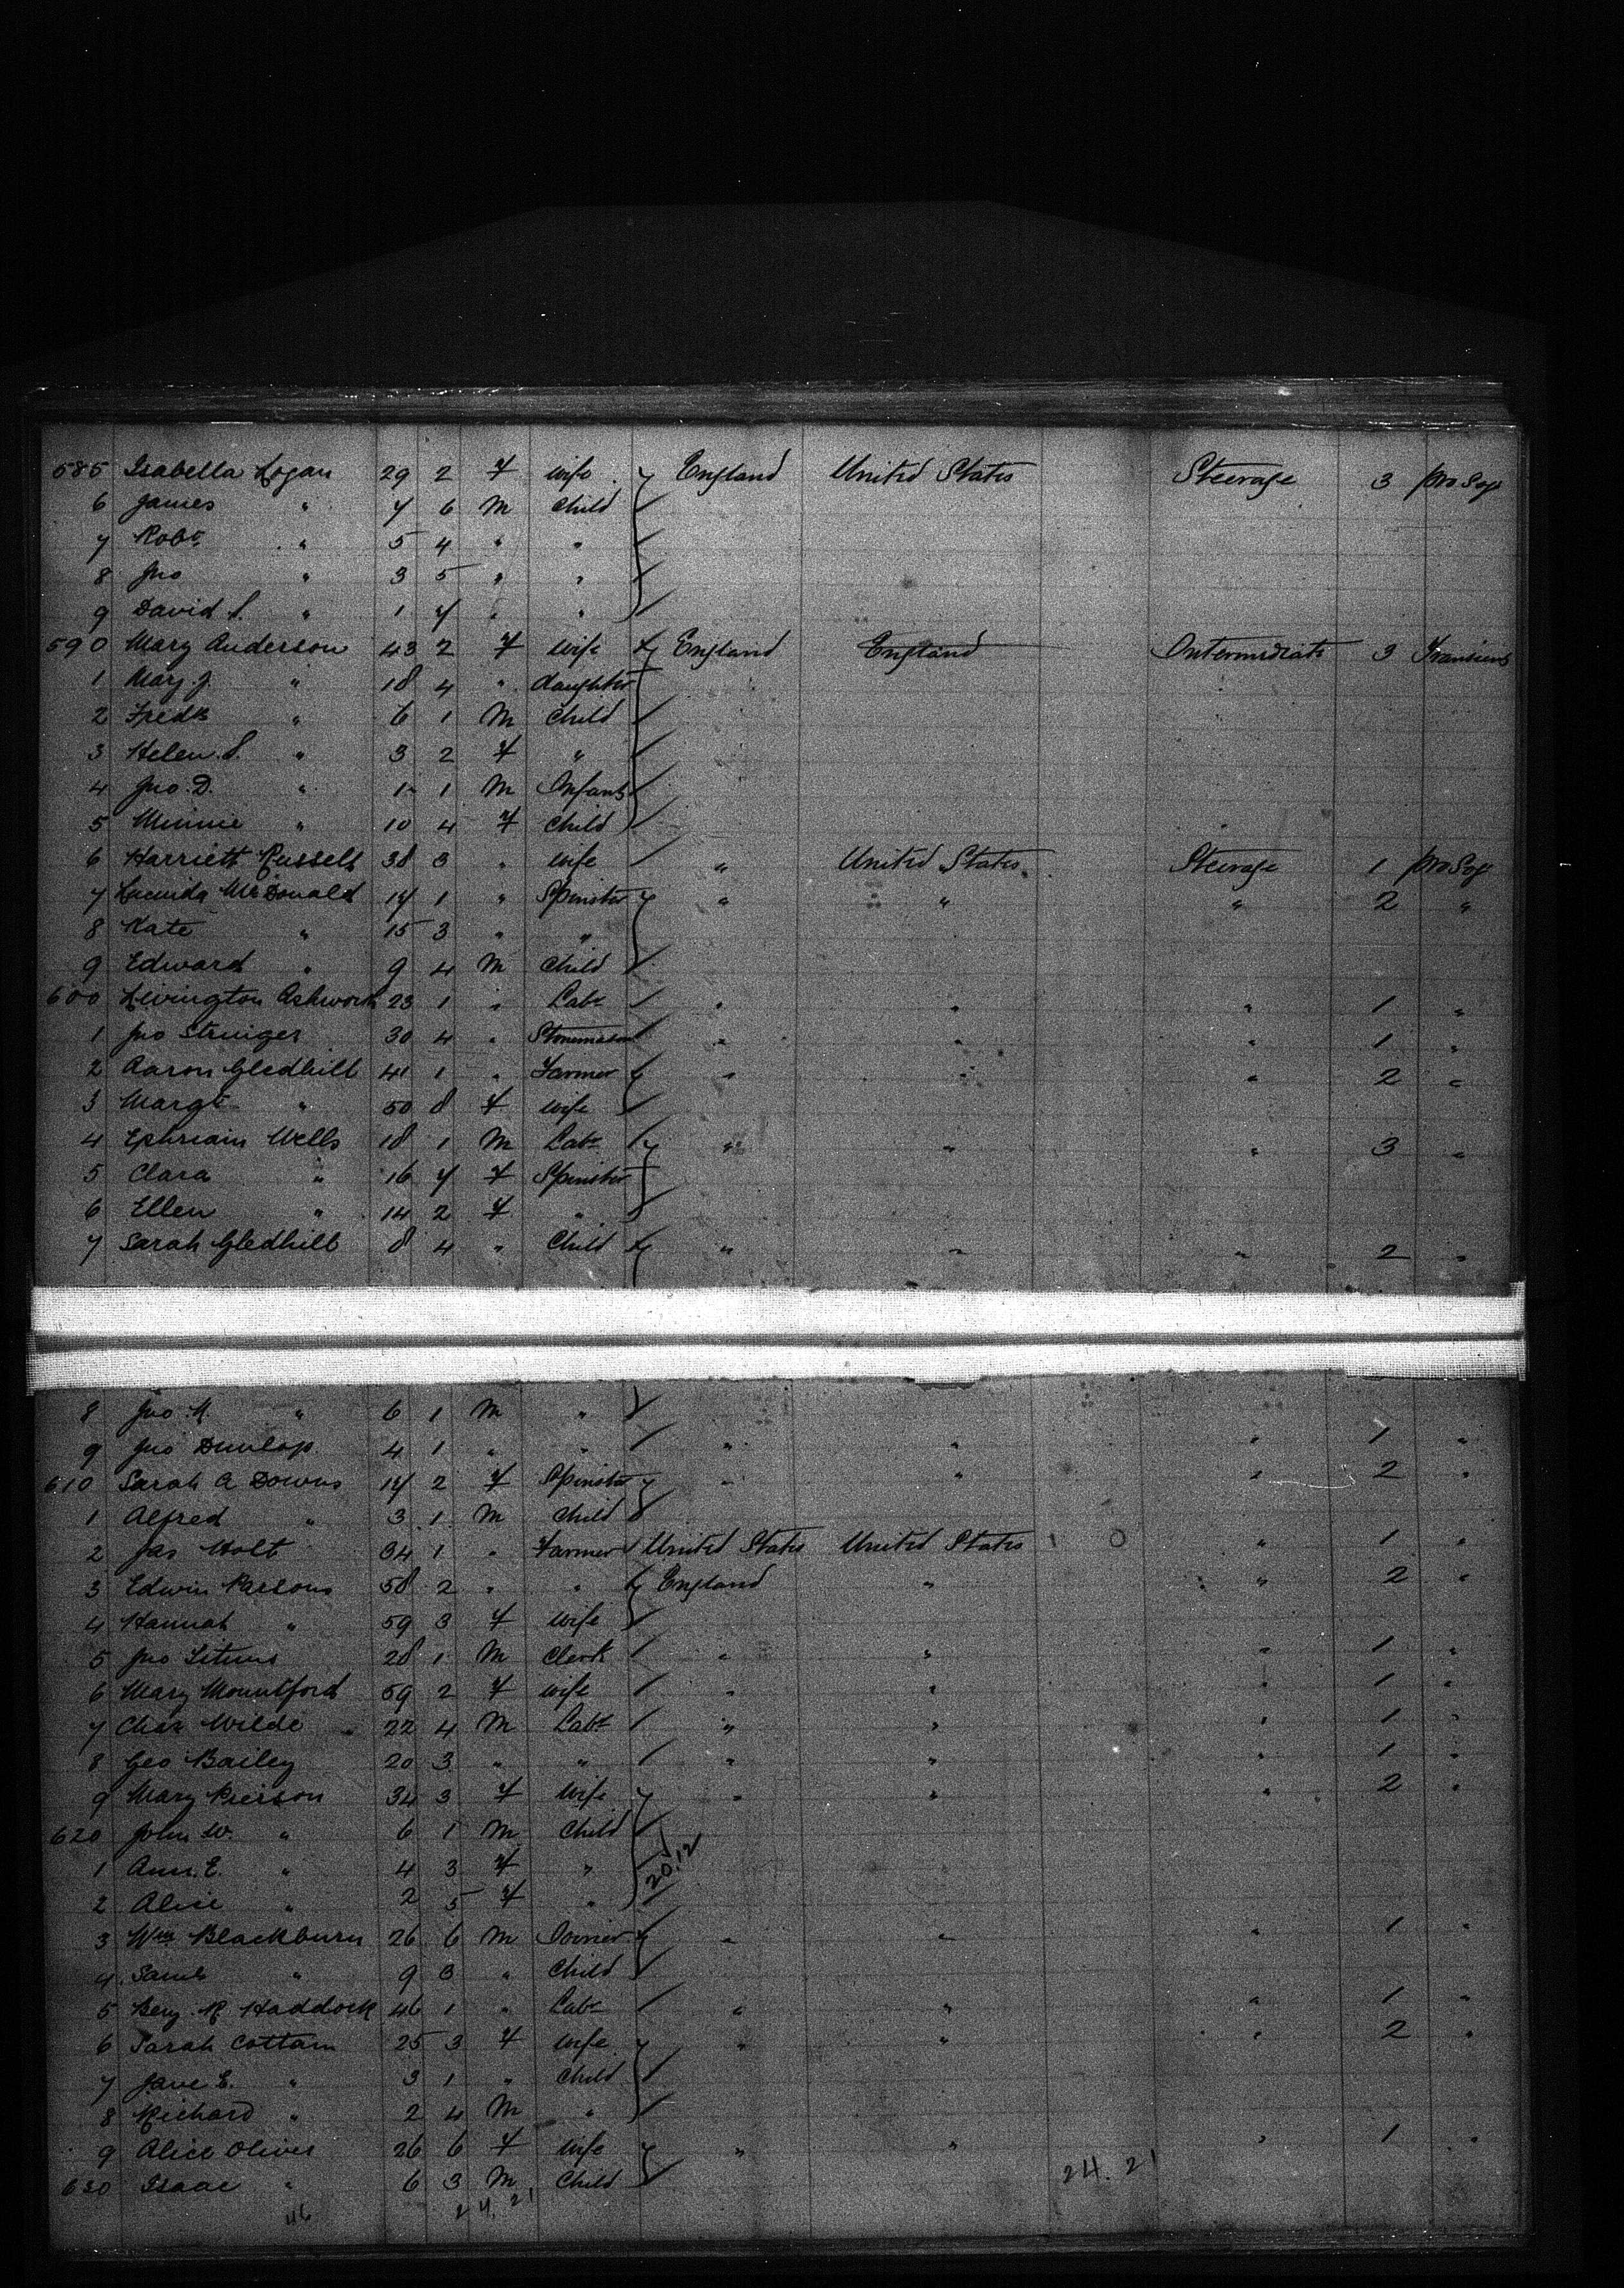 585 Isabella Logan 29 2 F wife England United States Steerage 3 pro Soj
6 James " 7 6 M Child
7 Robt " 5 4 " "
8 Jno " 3 5 " "
9 David S. " 1 7 " "
590 Mary Anderson 43 2 F Wife England England Intermediate 3 Transient
1 Mary J. " 18 4 " daughter
2 Fredk " 6 1 M Child
3 Helen S. " 3 2 F "
4 Jno. D. " 1 1 M Infant
5 Minnie " 10 4 F Child
6 Harriett Russell 38 3 " wife " United States Steerage 1 pro Soj
7 Lucinda McDonald 17 1 " Spinster " " " 2 "
8 Kate " 15 3 " "
9 Edward " 9 4 M Child
600 Livington Ashworth 23 1 " Labr " " " 1 "
1 Jno Stringer 30 4 " Stonemason " " " 1 "
2 Aaron Gledhill 41 1 " Farmer " " " 2 "
3 Margt " 50 8 F Wife
4 Ephriain Wells 18 1 M Labr " " " 3 "
5 Clara " 16 7 F Spinster
6 Ellen " 14 2 F "
7 Sarah Gledhill 8 4 " Child " " " 2 "
8 Jno. H. " 6 1 M "
9 Jno Dunlop 4 1 " " " " " 1 "
610 Sarah A Downs 17 2 F Spinster " " " 2 "
1 Alfred " 3 1 M Child
2 Jas Holt 34 1 " Farmer United States United States 0 " 1 "
3 Edwin Parsons 58 2 " " England " " 2 "
4 Hannah " 59 3 F wife
5 Jno 28 1 M Clerk " " " 1 "
6 Mary Mountford 59 2 F wife " " " 1 "
7 Chas Wilde 22 4 M Labr " " " 1 "
8 Geo Bailey 20 3 " " " " " 1 "
9 Mary Pierson 34 3 F Wife " " " 2 "
620 John W. " 6 1 M Child
1 Ann. E. " 4 3 F " 20.12
2 Alice " 2 5 F "
3 Wm Blackburn 26 6 M Joiner " " " 1 "
4 Saml " 9 3 " Child
5 Benj. R Haddock 46 1 " Labr " " " 1 "
6 Sarah Cottam 25 3 F wife " " " 2 "
7 Jane E. " 3 1 " Child
8 Richard " 2 4 M "
9 Alice Oliver 26 6 F Wife " " " 1 "
630 Isaac " 6 3 M Child 24. 21
46 24. 21